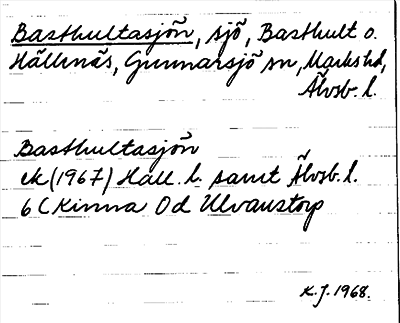 Basthultasjön, sjö, Basthult o.
Hällenäs, Gunnarsjö sn, Marks hd,
Älvsb. l.
Basthultasjön
ek (1967) Hall. l. samt Älvsb. l.
6 C Kinna 0 d Ulvanstorp
K.J. 1968.